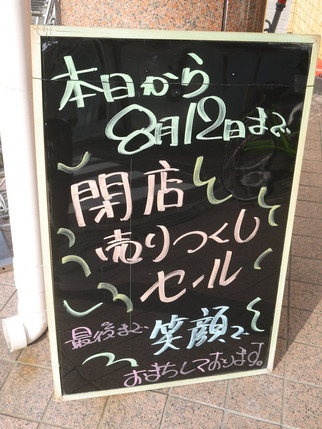 本日から
8月12日まで
閉店
売りつくし
セール
最後まで笑顔で
おまちしております。